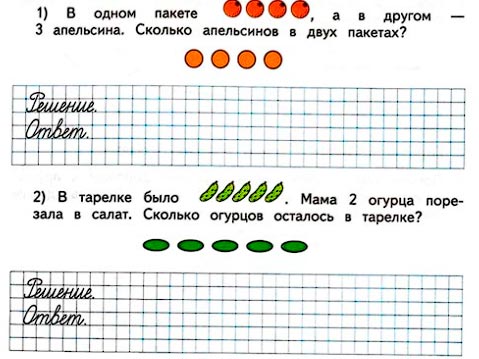 1) В одном пакете , а в другом —
3 апельсина. Сколько апельсинов в двух пакетах?
Решение.
Ответ.
2) В тарелке было . Мама 2 огурца поре-
зала в салат. Сколько огурцов осталось в тарелке?
Решение.
Ответ.